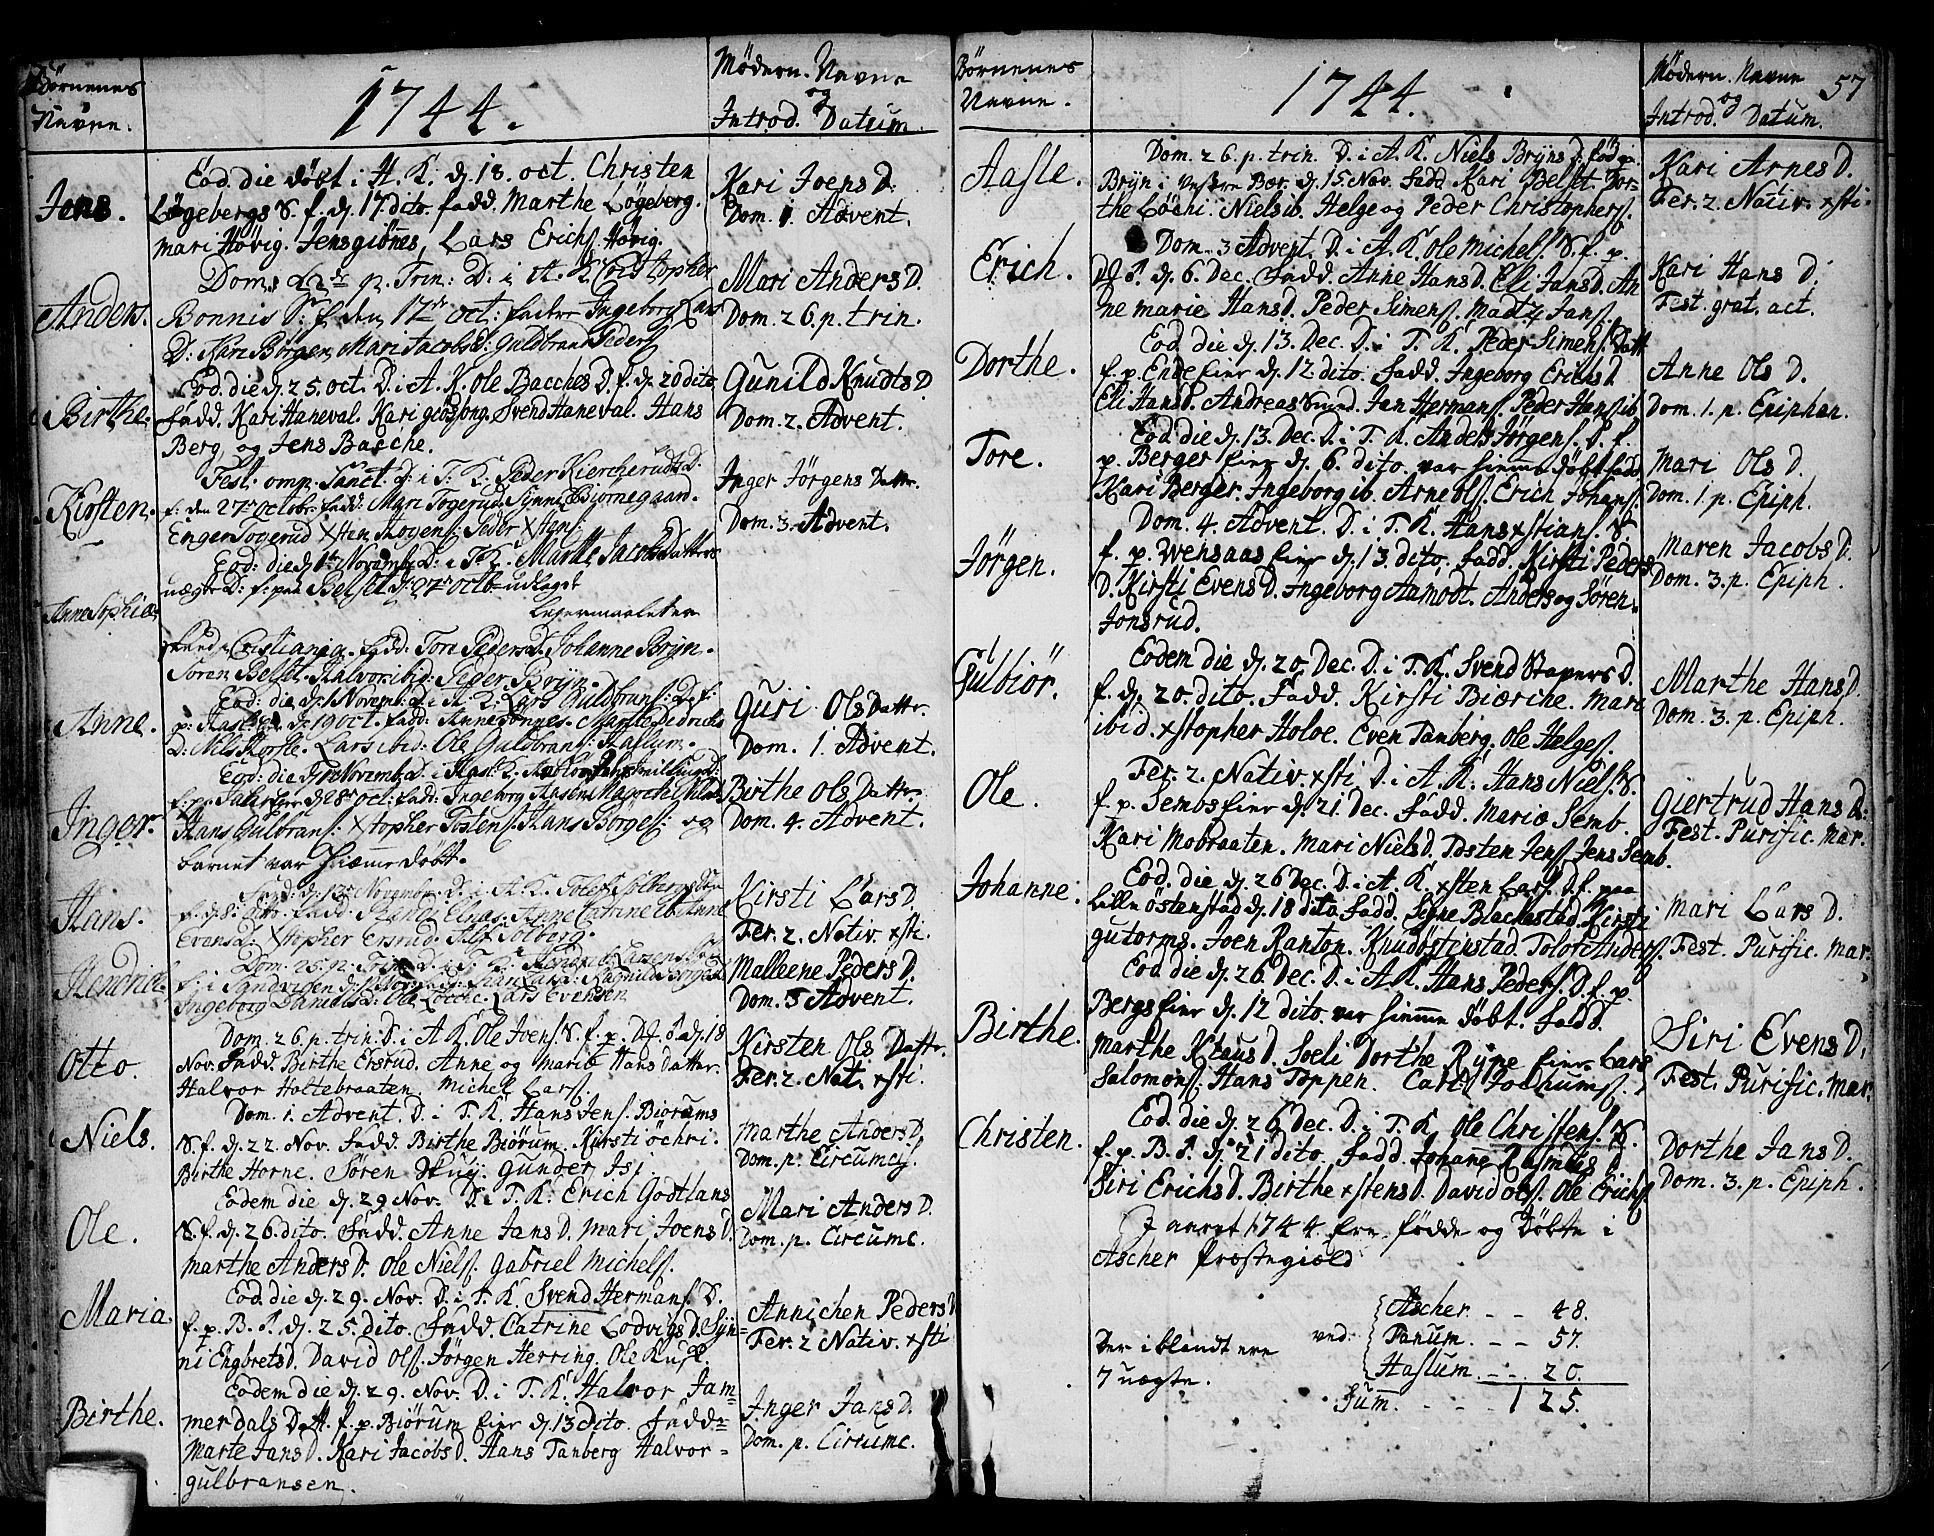 Børnenes
Navne.
1744.
Mødern. Navne
og
Introd. Datum.
Jens.
Eod. die døbt i H. K. d. 18. oct. Christen
Løgebergs S. f. d. 17 dito. fadd. Marthe Løgeberg.
Mari Høvig. Lars Erichs. Høvig.
Kari Joens D.
Dom. 1. Advent.
Anders.
p. Trin: D: i A. K. Cristopher
Bonnis S: f. den 12 oct: Ingeborg Lars
D: Kari Borgen, Mari Jacobsd: Guldbrand Peders.
Mari Anders D.
Dom. 26. p. trin.
Birthe.
Eod. die d. 25 oct. D. i A. K. Ole Bacches D. f. d. 20 dito
Fadd. Kari Haneval. Kari giøsborg. Svend Haneval. Hans
Berg og Jens Basche.
Gunild Knudts D
Dom. 2. Advent.
Kirsten.
Fest. omn. Sanct. D: i T. K. Peder Kiercheruds D.
f: den 27 octobr. fadd: Mari Togerud. Bjørnegaard.
Enger Togerud
Inger Jørgens Dattr.
Dom. 3. Advent.
Anne Sophia
Eod: die d. 1 Novemb: D: i T. K: Marthe Jacobs Datters
uægte D: f: paa Belset d: 27 octo udlagt
Lejermaalet
Cristiania. fadd: Tore Peders D. Johanne Bryn.
Søren Belset. Halvor ibid: Peder Bryn.
Anne.
Eod: die d. 1 Novemb: D. i A. K: Lars Guldbrans: D. f:
p: Haslum d. 19 oct. fadd: Anne
D: Lars ibid: Ole Guldbrans: Haslum.
Guri Ols Dattr.
Dom. 1. Advent.
Inger.
Eod: die d. 1 Novemb. D. i Hasl. K.
d 28 oct: fadd: Ingeborg
Hans Gulbrans: Xstopher Tostens. Hans Børges: og
barnet var hiemme døbt.
Birthe Ols Dattr
Dom. 4. Advent.
Hans.
Novembr. D. i A. K. Solbergs
f. d. 8: dito. fadd. Anne Catrine ib. Anne
Evensd: Xstopher Ersrud. Alf Solberg.
Kirsti Lars D.
Fer. 2. Nativ. xsti.
Hendrich.
Dom. 25. p: Trin. D. i T. K:
f: i Sandvigen
Ingeborg Daniels D: Ole Løcche. Lars Evensen
Malleene Peders D.
Dom. 3 Advent.
Otto.
Dom. 26. p. trin. D. i A. K. Ole Joens. S. f. p. d. 18
Nov. Fadd. Birthe Ersrud. Anne og Marie Hans Datter.
Halvor Holtebraaten. Michel Lars.
Kirsten Ols Dattr.
Fer. 2. Nat. xsti.
Niels.
Dom. 1. Advent. D. i T. K. Hans Jens. Biørums
S. f. d. 22. Nov. Fadd. Birthe Biørum. Kirsti Øchri.
Birthe Horne. Søren Skuy. gunder Isi.
Marthe Anders D
Dom. p. Circumcis.
Ole.
Eodem die d. 29 Nov. D. i T. K: Erich Godtlans
S. f. d. 26. dito. Fadd. Anne Jans D. Mari Joens D.
Marthe Anders D. Ole Niels. Gabriel Michels.
Mari Anders D.
Dom. p. Circumc.
Maria.
Eod. die d. 29. Nov. D. i T. K. Svend Hermans. D.
f. p. B. P. d. 25. dito. Fadd. Catrine Lodvigs D. Syn-
ni Engbretsd. David Ols. Jørgen Herring. Ole Kusk.
Annichen Peders D
Fer. 2 Nativ. xsti
Birthe.
Eodem die d. 29. Nov. D. i T. K. Halvor Jam-
merdals Datt. f. p. Biørum Eier d. 13 dito. Fadd.
Marte Jans D. Kari Jacobs D. Hans Tanberg Halvor-
gulbransen.
Inger Jans D.
Dom. p. Circumc.
Børnenes
Navne.
1744.
Mødern. Navne
og
Introd. Datum.
57
Aasle.
Dom. 26. p. trin. D. i A. K. Niels Bryns D. fød p.
Bryn i Vestre Bær. d. 15. Nov. Fadd Kari Belset. Dor-
the Løchi. Niels ib. Helge og Peder Christophers.
Kari Arnes D.
Fer. 2. Nativ. xsti.
Erich.
Dom. 3 Advent. D. i A. K. Ole Michels. S. f. p.
d. 6. Dec. Fadd. Anne Hans D. Eli Jans D. An
ne Marie Hans D. Peder Simens. Mads Jans.
Kari Hans D.
Fest. grat. act.
Dorthe.
Eod. die d. 13. Dec. D. i T. K. Peder Simens. Datt
f. p. Ende Eier d. 12 dito. Fadd. Ingeborg Erichs D.
Eli Hans D. Andreas Jan Hermans. Peder Hans ib.
Anne Ols D.
Dom. 1. p. Epiphan.
Tore.
Eod. die d. 13. Dec. D. i T. K. Anders Jørgens. D. f.
p. Berger Eier d. 6. dito. var hiemme døbt. fadd
Kari Berger. Ingeborg ib. Arne Ols. Erich Johans.
Mari Ols D.
Dom. 1. p. Epiph.
Jørgen.
Dom. 4. Advent. D. i T. K. Hans xstians. S.
f. p. Wensaas Eier d. 13. dito. Fadd. Kirsti Peders
D. Kirsti Evens D. Ingeborg Aamodt. Anders og Søren
Jonsrud.
Maren Jacobs D.
Dom. 3. p. Epiph.
Gulbiør.
Eodem die d. 20. Dec. D. i T. K. Svend Stapers D.
f. d. 20. dito. Fadd. Kirsti Biærche. Mari
ibid. xstopher Holoe. Even Tanberg. Ole Helges.
Marthe Hans D.
Dom. 3. p. Epiph.
Ole.
Fer. 2. Nativ. xsti D. i A. K. Hans Niels. S.
f. p. Sembs Eier d. 21 Dec. Fadd. Marie Semb.
Kari Mobraaten. Mari Niels D. Tosten Jens. Jens Semb.
Giertrud Hans D:
Fest. Purific. Mar.
Johanne.
Eod. die d. 26 Dec. D. i A. K. xsten Lars. D. f. paa
Lille Østenstad d. 18 dito. Fadd. Signe Blackestad. Kirsti
gutorms. Joen Ranton. Knud Østenstad. Tolof Anders.
Mari Lars D.
Fest. Purific. Mar.
Birthe.
Eod. die d. 26 Dec. D. i A. K. Hans Peders. D. f. p.
Bergs Eier d. 12 dito. var hiemme døbt. Fadd.
Marthe Klaus D. Soeli. Dorthe Ryne Eier. Lars
Salomons. Hans Toppen. Carl Jochums.
Siri Evens D.
Fest. Purific. Mar.
Christen.
Eod. die d. 26 Dec. D. i T. K. Ole Christens. S.
f. p. B. P. d. 21 dito. Fadd Johanne Rasmus D.
Siri Erichs D. Birthe xstens D. David Ols. Ole Erichs.
Dorthe Jans D.
Dom. 3. p. Epiph.
I aaret 1744 ere fødde og Døbte i
Ascher Præstegiæld
Der iblandt ere
7 uægte.
ved.
Ascher. - - 48.
Tanum. - - 57.
Haslum. - - 20.
Sum. - - - 125.